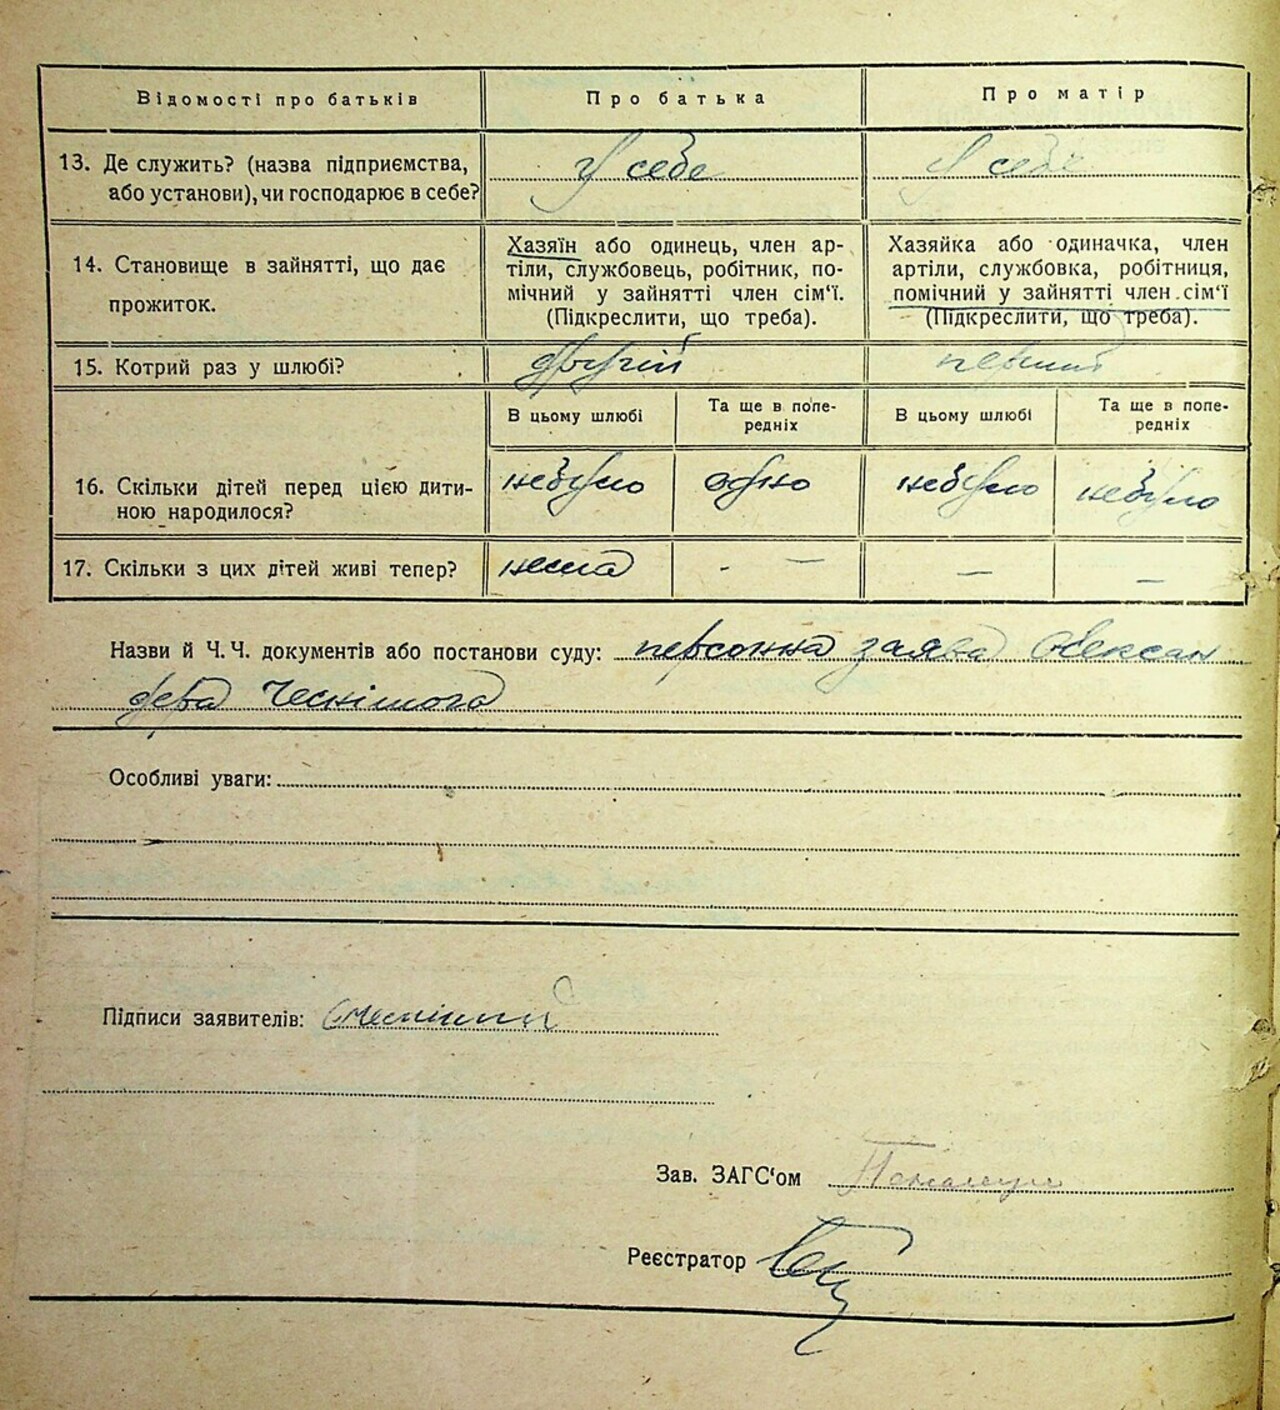 Відомості про батьків
Про батька
Про матір
13. Де служить? (назва підприємства,
або установи), чи господарює в себе?
У себе
У себе
14. Становище в зайнятті, що дає
прожиток.
Хазяїн або одинець, член ар-
тіли, службовець, робітник, по-
мічний у зайнятті член сім‘ї.
(Підкреслити, що треба).
Хазяйка або одиначка, член
артіли, службовка, робітниця,
помічний у зайнятті член сім‘ї
(Підкреслити, що треба).
15. Котрий раз у шлюбі?
другій
перший
В цьому шлюбі
Та ще в попе-
редніх
В цьому шлюбі
Та ще в попе-
редніх
16. Скільки дітей перед цією дити-
ною народилося?
небуло
одно
небуло
небуло
17. Скільки з цих дітей живі тепер?
нема
-
—
—
—
Назви й Ч. Ч. документів або постанови суду: персонна заява Олексан
дера
Особливі уваги:
Підписи заявителів:
Зав. ЗАГС‘ом
Реєстратор